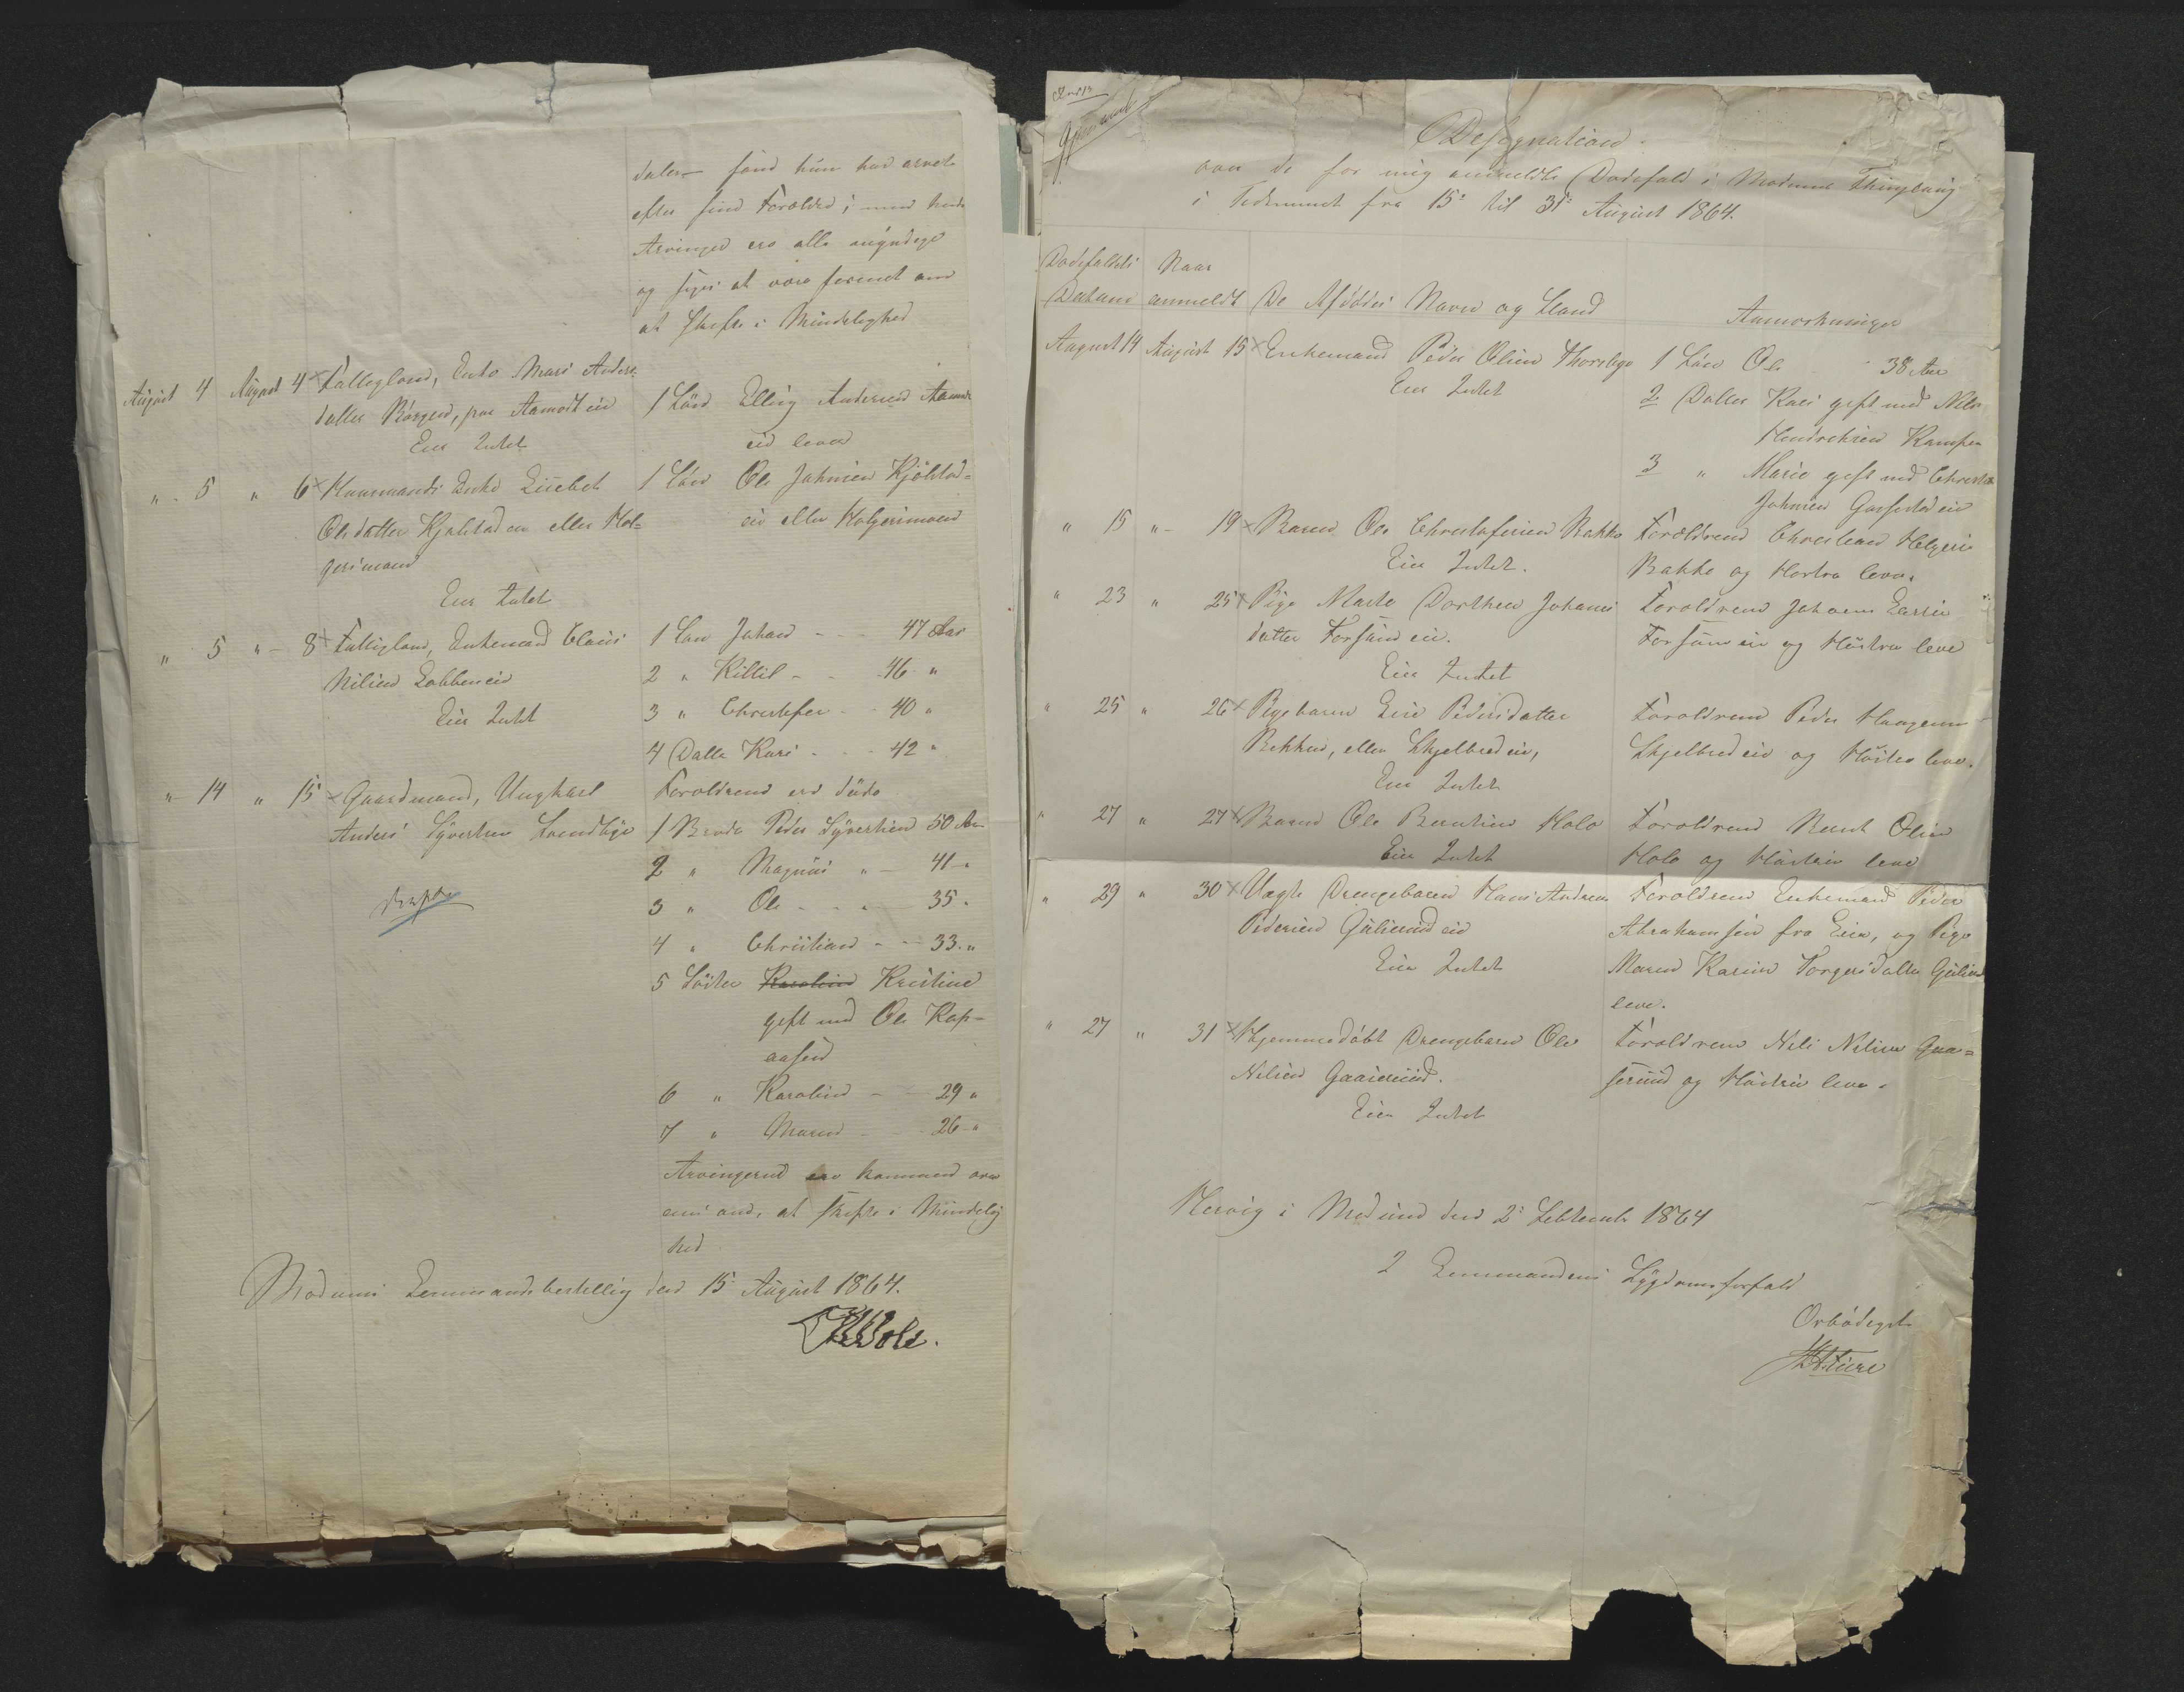 daler som hun har arvet
efter sine Forældre; med hendes
Arvinger ere alle myndige
og siges at være forenet om
at skifte i Mindelighed
August 4 August 4 Fattiglem, Enke Mari Anders-
datter Børgen, paa Aamodt eie
Eier Intet
1 Søn Elling Andersen Aamodt
eie lever
" 5 " 6 Huusmands Enke Lisebet
Olsdatter Kjølstad eie eller Hol-
gersmoen
Eier Intet
1 Søn Ole Johnsen Kjølstad-
eie eller Holgersmoen
" 5 " 8 Fattiglem, Enkemand Claus
Nilsen Løbben eie
Eier Intet
1 Søn Johan - - 47 Aar
2 " Kittil - - 46 "
3 " Christofer - - 40 "
4 Datter Kari - - 42 "
" 14 " 15 Gaardmand, Ungkarl
Anders Syvertsen Sundbye
Forældrene ere døde
1 Broder Peder Syvertsen 50 Aar
2 " Magnus " - 41 "
3 " Ole - - " - 35 "
4 " Christian - - 33 "
5 Søster Karoline Kristine
gift med Ole Kop-
aasen
6 " Karoline - - 29 "
7 " Maren - - 26 "
Arvingerne ere kommen over
eens om, at skifte i Mindelig
hed
Modums Lensmandsbestilling den 15 August 1864.
Designation
over de for mig anmeldte Dødsfald i Modums Thinglaug
i Tidsrummet fra 15de til 31te August 1864.
Dødsfaldets Naar
Datum anmeldt De Afdødes Navn og Stand Anmærkninger
August 14 August 15 Enkemand Peder Olsen Thorsbye
Eier Intet
1 Søn Ole 38 Aar
2 Datter Kari gift med Nils
Hendriksen Kampen
3 " Marie gift med Christen
Johnsen eie
" 15 " 19 Barnet Ole Christofersen Bakke
Eier Intet.
Forældrene Christian Helgesen
Bakke og Hustru leve.
" 23 " 25 Pige Marte Dorthea Johans
datter Forsund eie.
Eier Intet
Forældrene Johan Larsen
Forsund eie og Hustru leve
" 25 " 26 Pigebarn Lise Pedersdatter
Bekken, eller Skjelbred eie,
Eier Intet
Forældrene Peder Haagensen
Skjelbred eie og Hustru leve.
" 27 " 27 Barnet Ole Berntsen Hole
Eier Intet
Forældrene Bernt Olsen
Hole og Hustru leve
" 29 " 30 Uægte Drengebarn Hans Andreas
Pedersen Gulsrud eie
Eier Intet
Forældrene Enkemand Peder
Abrahamsen fra Eier, og Pige
Maren Karine Torgersdatter Gulsrud
leve.
" 27 " 31 Hjemmedøbt Drengebarn Ole
Nilsen Gaaserud.
Eier Intet
Forældrene Nils Nilsen Gaa-
serud og Hustru leve.
Hervig i Modum den 2 Septembr 1864
I Lensmandens Sygdomsforfald
Ærbødigst